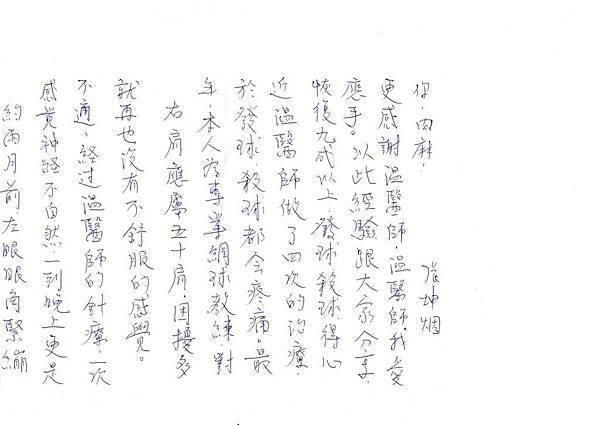 約兩月前,左眼眼角緊繃
感覺神经不自然,一到晚上更是
不適,经过溫醫師的針療,一次
就再也沒有不舒服的感覺。
右肩應屬五十肩,困擾多
年,本人為專業網球教練,對
於發球、殺球都会疼痛。最
近溫醫師做了四次的治療,
恢復九成以上,發球殺球得心
應手。以此經驗跟大家分享.
更感謝溫醫師,溫醫師,我愛
你,肉麻.
張坤烟